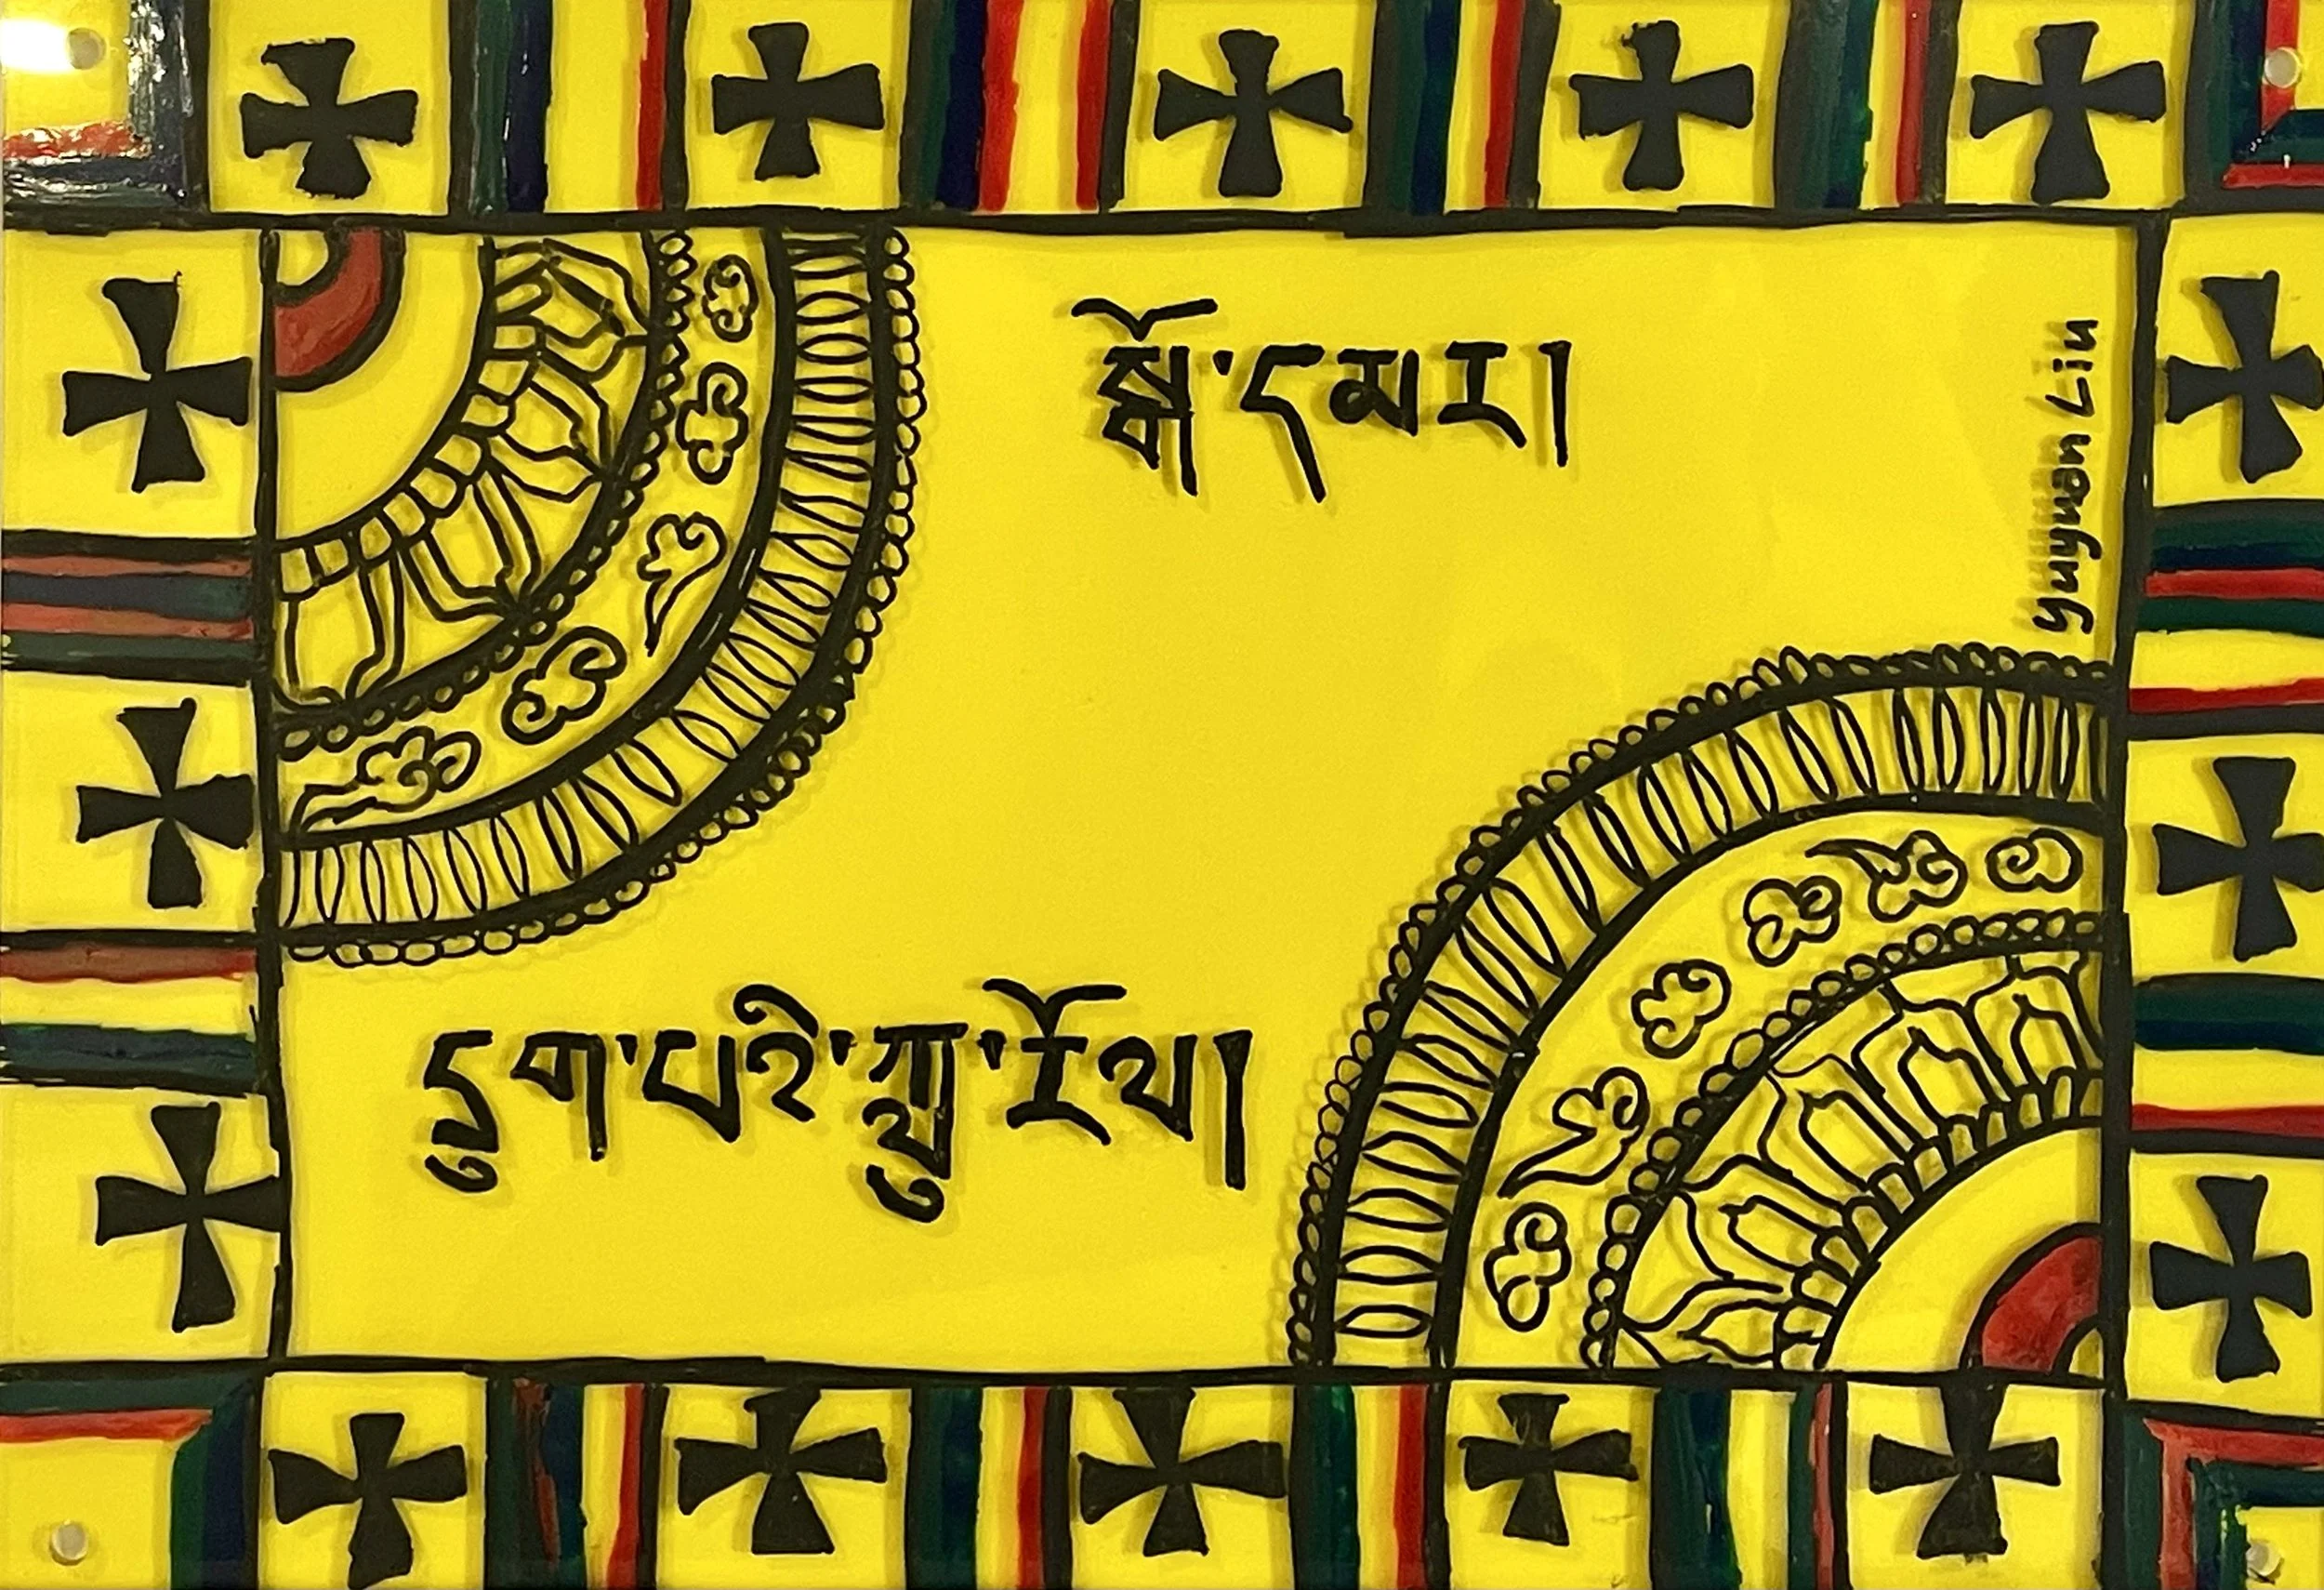 སྒོ་དམར།
དྲུག་པའི་ཀླུ་རོལ།
Yuyuan Liu